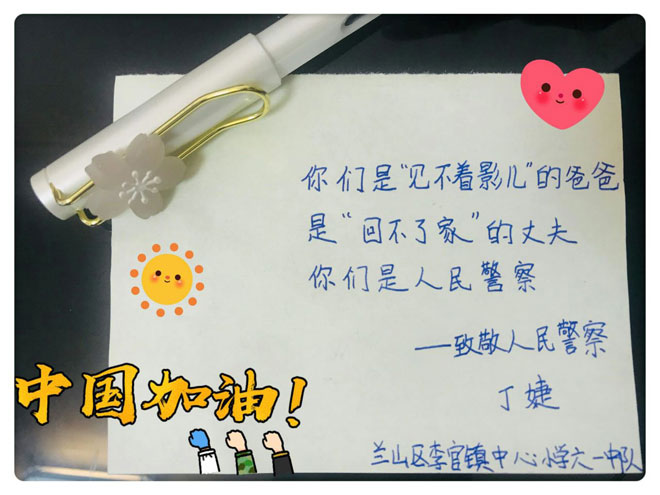 你们是“见不着影儿”的爸爸
是“回不了家”的丈夫
你们是人民警察
——致敬人民警察
丁婕
兰山区李官镇中心小学六一中队
中国加油！